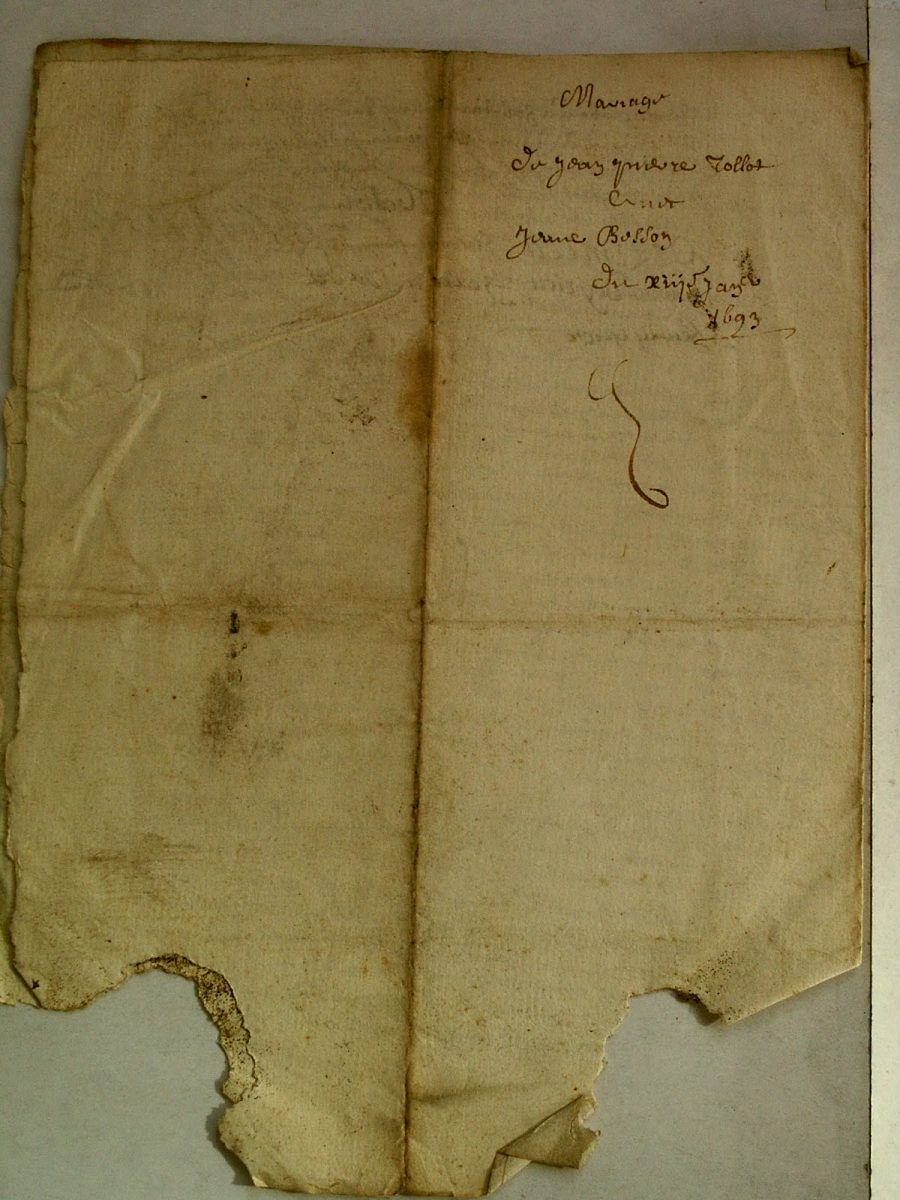 Mariage
De Jean pierre Tollot
Avec
Jeane Bosson
Du xviije Janv
1693